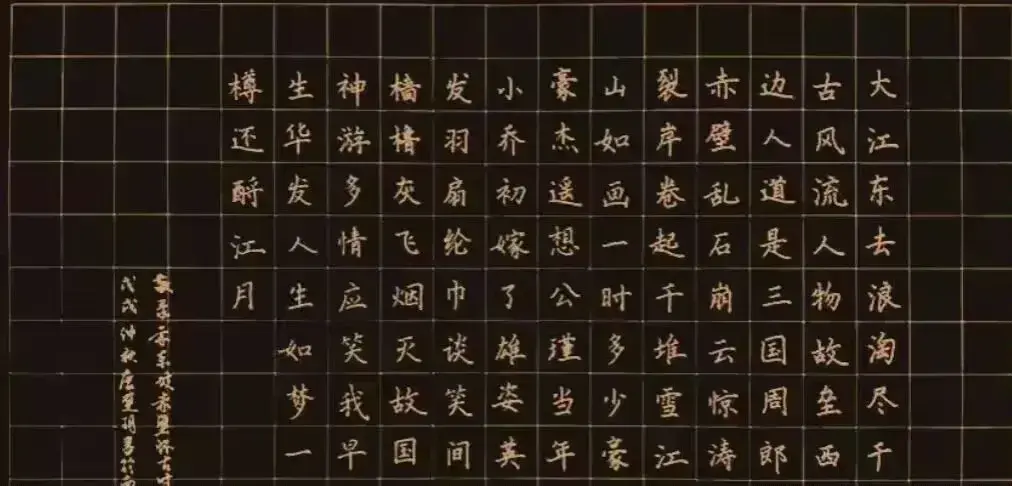 大江东去浪淘尽千
古风流人物故垒西
边人道是三国周郎
赤壁乱石崩云惊涛
裂岸卷起千堆雪江
山如画一时多少豪
豪杰遥想公瑾当年
小乔初嫁了雄姿英
发羽扇纶巾谈笑间
樯橹灰飞烟灭故国
神游多情应笑我早
生华发人生如梦一
樽还酹江月
戊戌仲秋